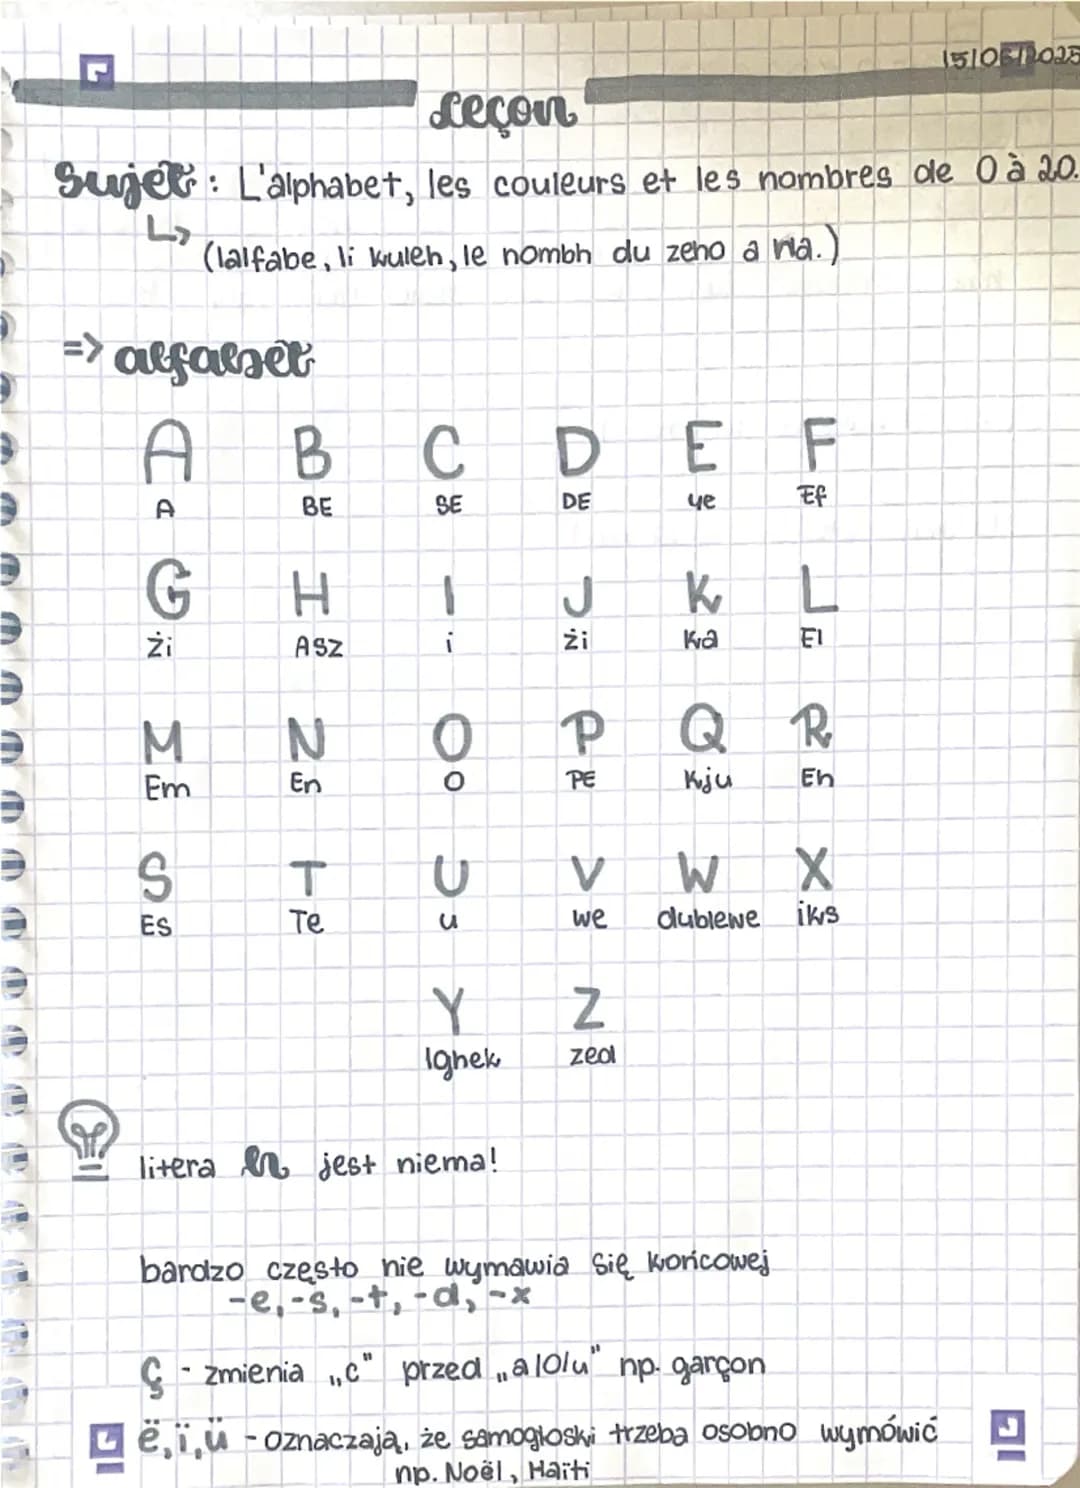 15/05/2025
Leçon
Sujet : L'alphabet, les couleurs et les nombres de 0 à 20.
(lalfabe, li kuleh, le nombh du zeho a
=> alfabet
A B C D E F
A BE SE DE ye Ef
G H I J K L
żi ASZ i żi Ka El
M N O P Q R
Em En O PE Kju Eh
S T U V W X
ES Te u we dublewe iks
Y Z
Ighek zed
litera h jest niema!
bardzo często nie wymawia się końcowej
-e, -s, -t, -d, -x
ç - zmienia „c" przed „a/o/u" np. garçon
ë, ï, ü - oznaczają, że samogłoski trzeba osobno wymówić
np. Noël, Haïti